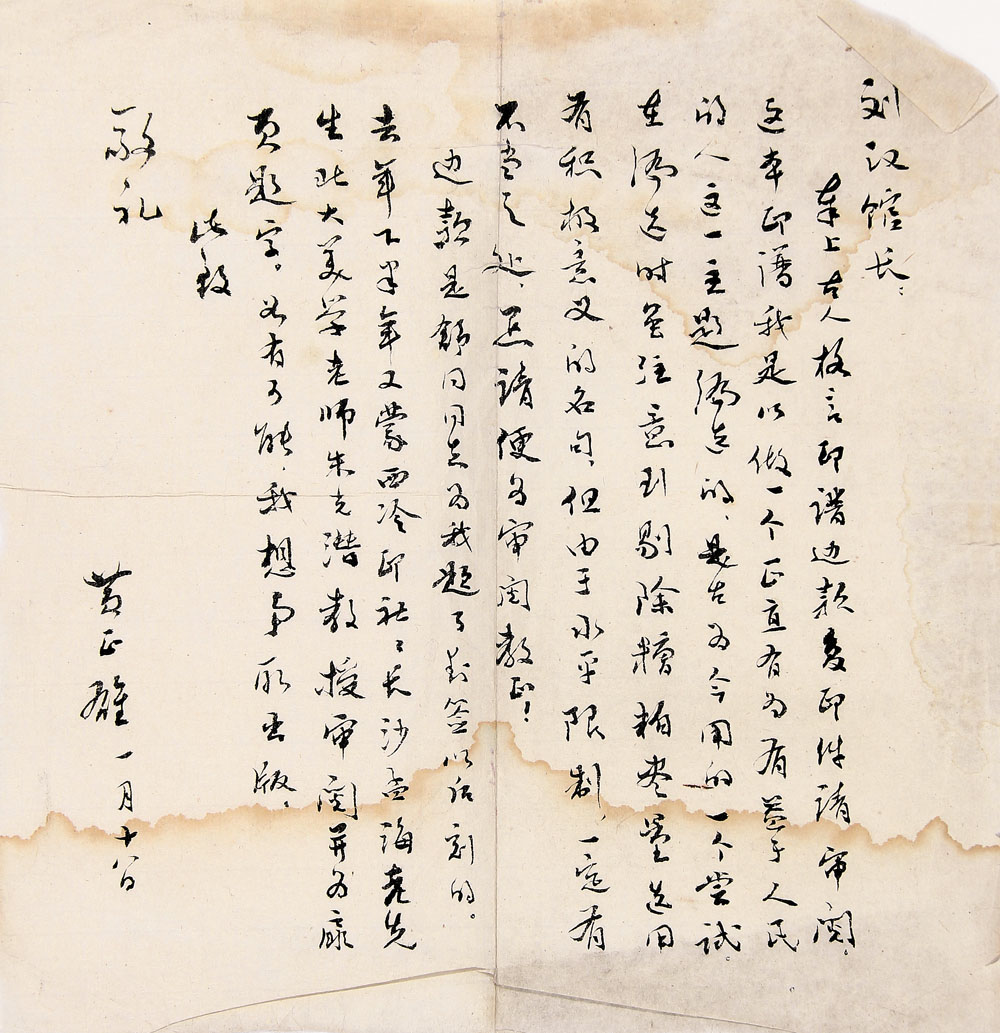 刘汉馆长：
奉上古人格言印谱边款复印件请审阅。
这本印谱我是以做一个正直有为有益于人民
的人这一主题编选的，是古为今用的一个尝试。
在编选时虽注意到剔除糟粕尽量选用
有积极意义的名句，但由于水平限制，一定有
不当之处，恳请便为审阅教正！
边款是舒同同志为我题了封签以后刻的。
去年下半年又蒙西泠印社社长沙孟海老先
生、北大美学老师朱光潜教授审阅并为扉
页题字。如有可能，我想争取出版。
此致
敬礼
黄正雄 一月十八日